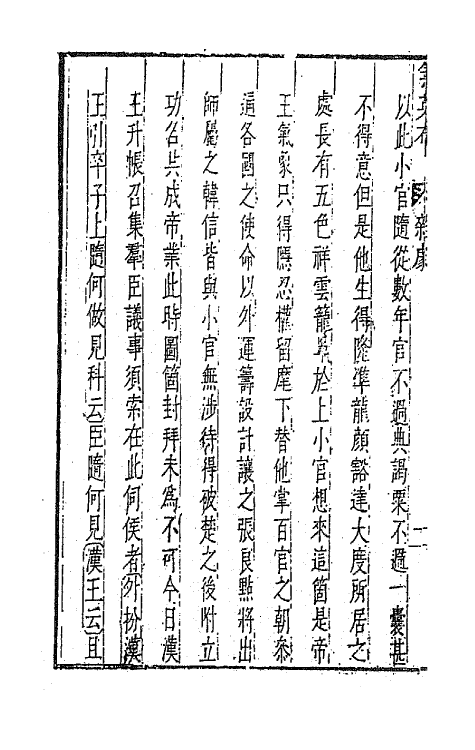 氣英布　雜劇　二
以此小官隨從數年官不過典謁粟不過一囊甚
不得意但是他生得隆準龍顏豁達大度所居之
處長有五色祥雲籠罩於上小官想來這箇是帝
王氣象只得隱忍權留麾下替他掌百官之朝參
這各國之使命以外運籌設計讓之張良點將出
師屬之韓信皆與小官無涉待得破楚之後附立
功名共成帝業此時圖箇封拜未爲不可今日漢
王升帳召集羣臣議事須索在此伺侯者外扮漢
王引卒子上隨何做見科云臣隨何見漢王云且